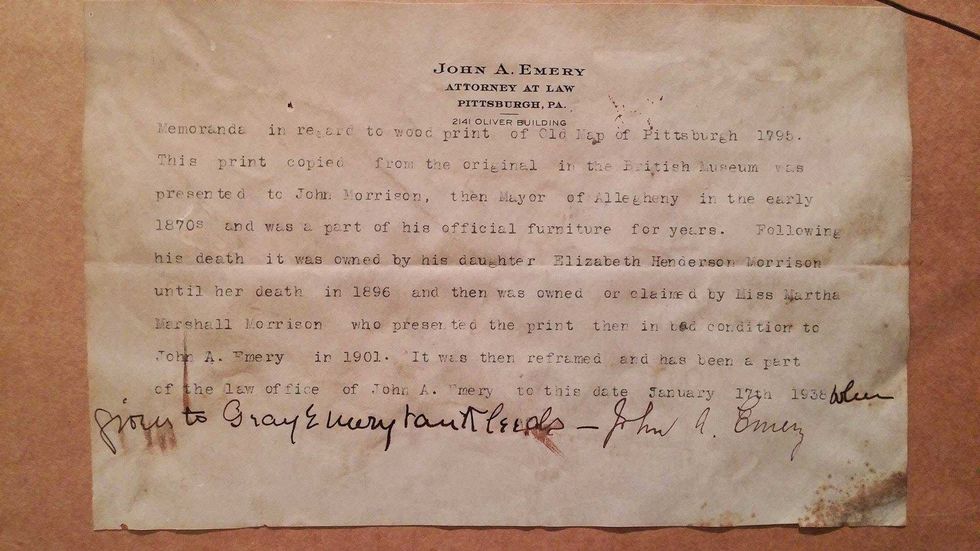 JOHN A. EMERY
ATTORNEY AT LAW
PITTSBURGH, PA.
2141 OLIVER BUILDING
Memoranda in regard to wood print of Old Map of Pittsburgh 1795.
This print copied from the original in the British Museum was
presented to John Morrison, then Mayor of Allegheny in the early
1870s and was a part of his official furniture for years. Following
his death it was owned by his daughter Elizabeth Henderson Morrison
until her death in 1896 and then was owned or claimed by Miss Martha
Marshall Morrison who presented the print then in bad condition to
John A. Emery in 1901. It was then reframed and has been a part
of the law office of John A. Emery to this date January 17th 1938 when
given to Gray Emery — John A. Emery